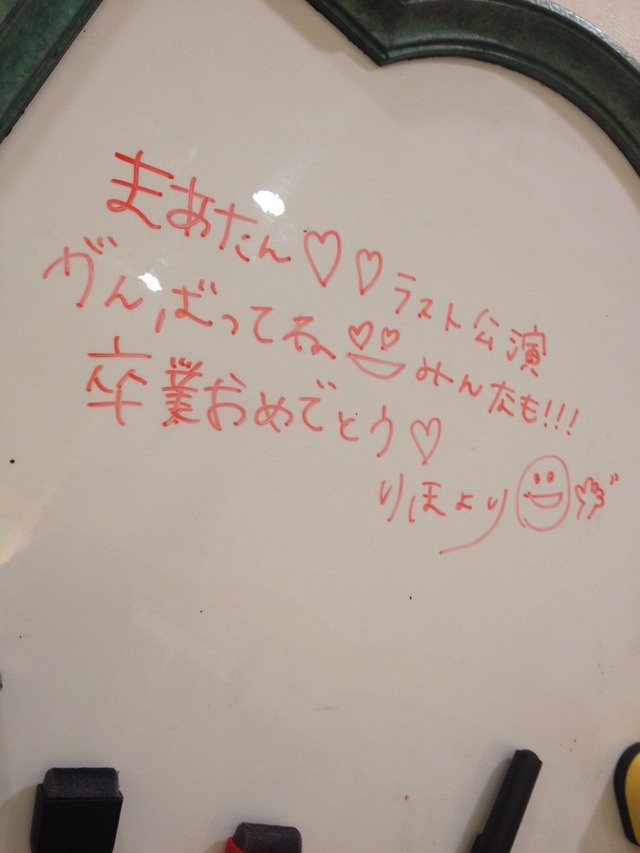 まあたん♡♡ラスト公演
がんばってね みんなも!!!
卒業おめでとう♡
りほより